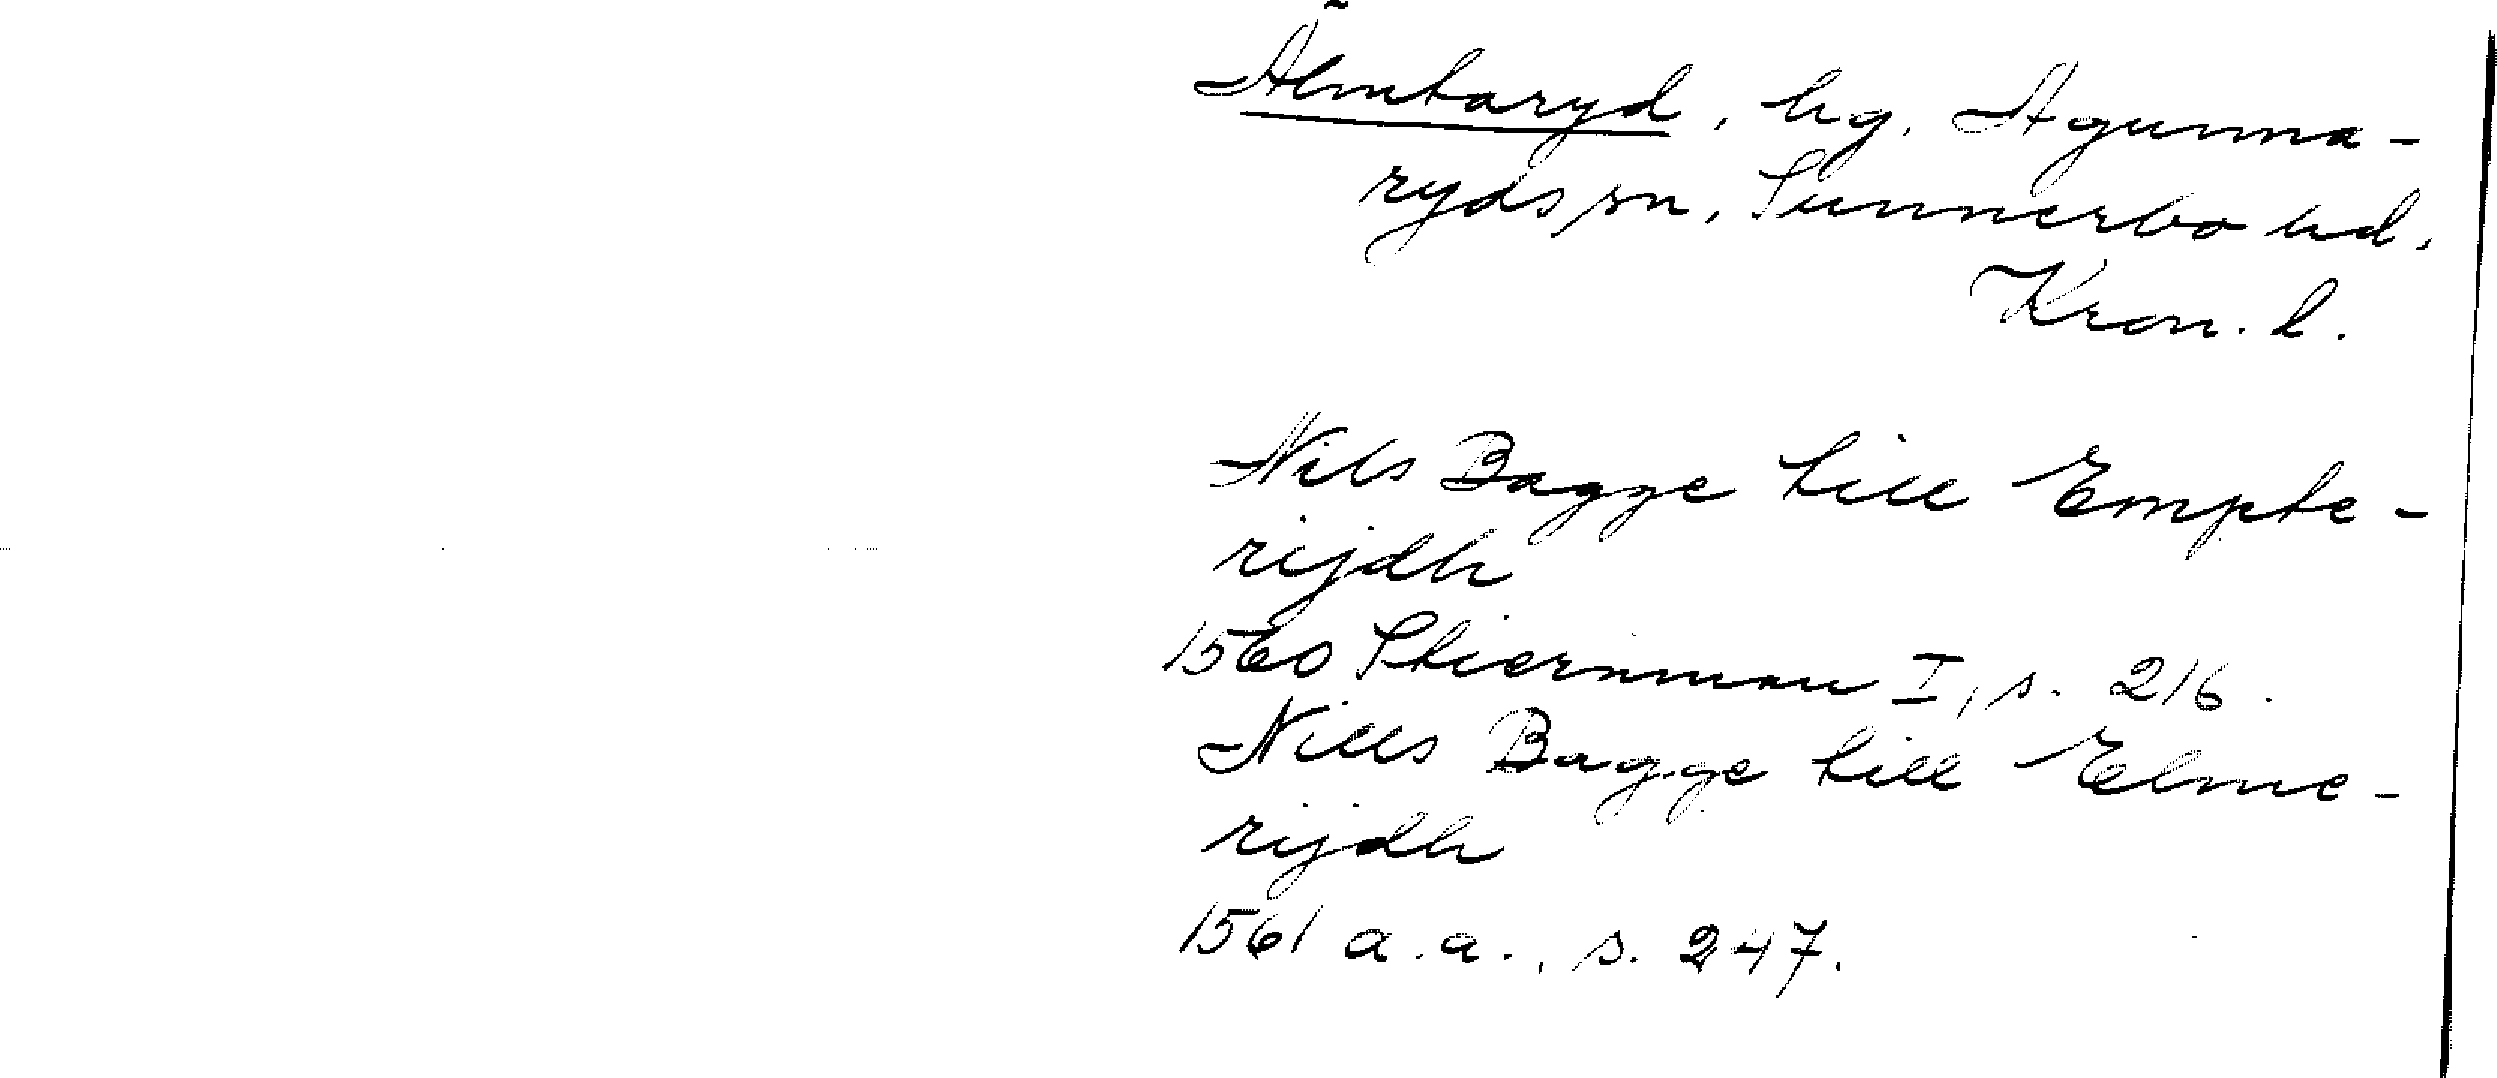 Älmtaryd, hg. Agunna-
ryds sn, Sunnerbo hd.
Kron. l.
Nils Bagge till Empte-
rijdh
1560 Stiernman I, s. 216.
Nills Bagge till Elme-
rijdh
1561 a.a., s. 247.